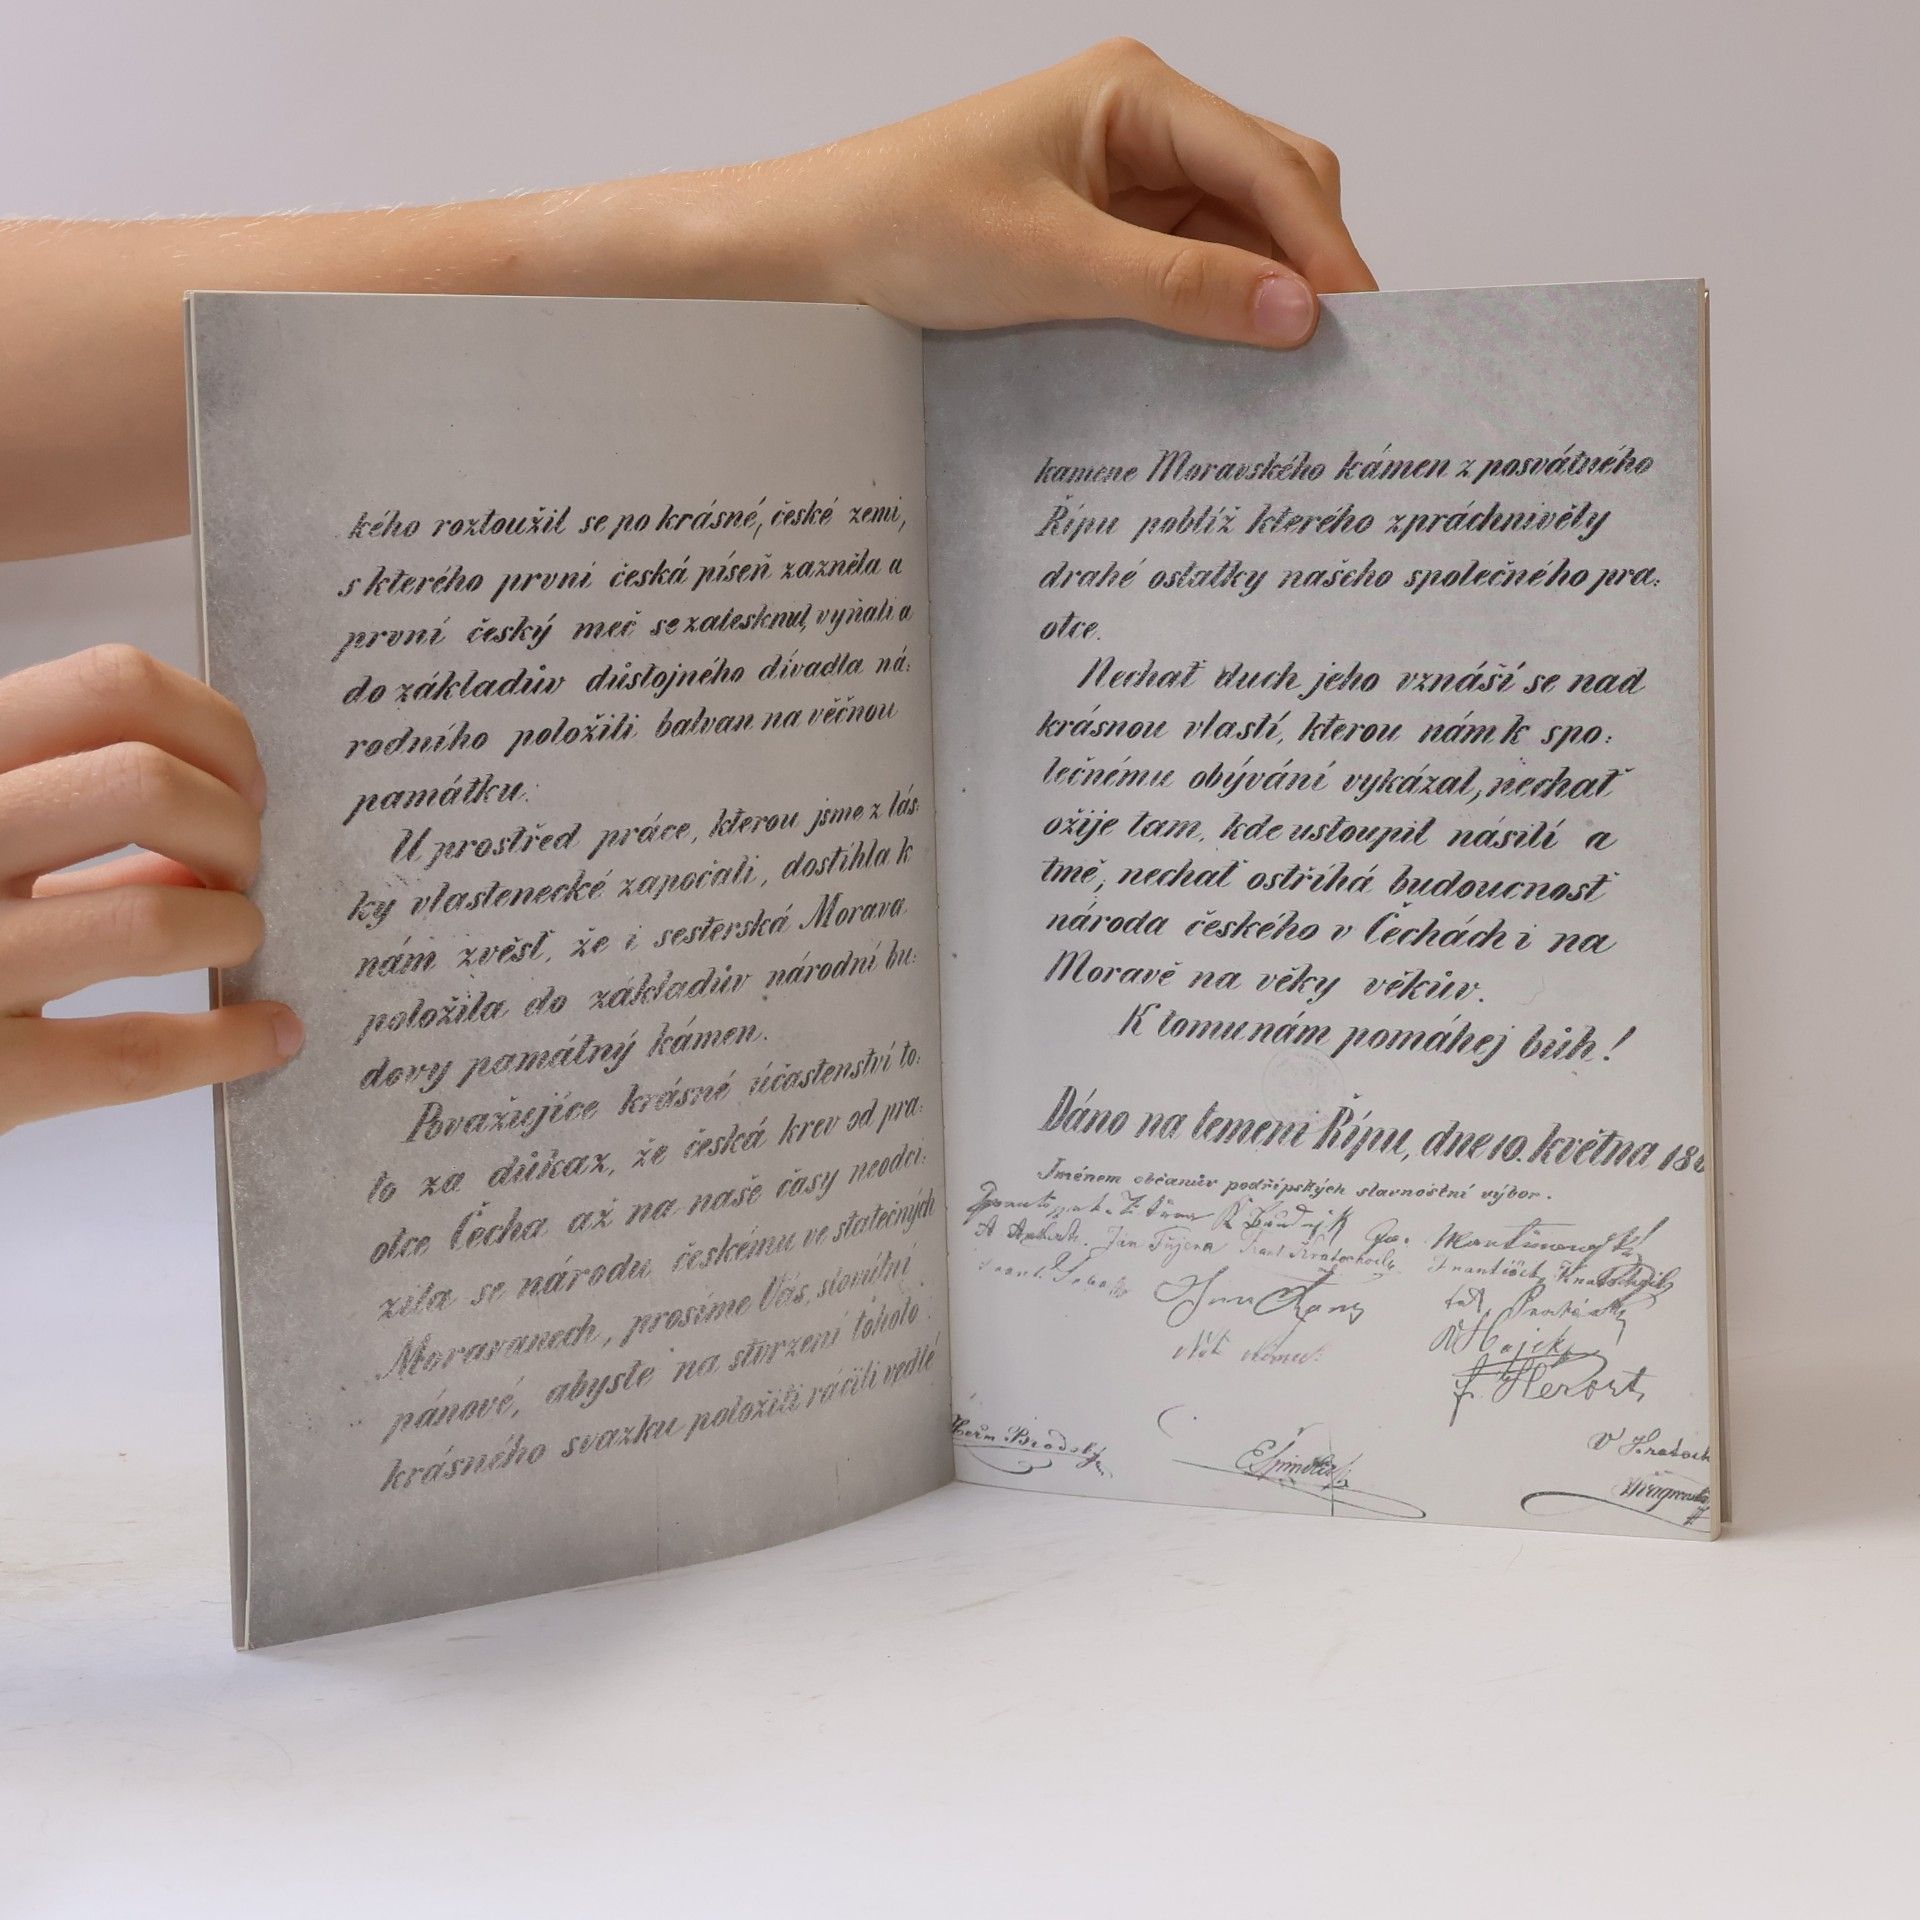 kého roztoužil se po krásné, české zemi,
s kterého první česká píseň zazněla a
první český meč se zalesknul, vyňali a
do základův důstojného divadla ná:
rodního položili balvan na věčnou
památku.
U prostřed práce, kterou jsme z lás:
ky vlastenecké započali, dostihla k
nám zvěst, že i sesterská Morava
položila do základův národní bu:
dovy památný kámen.
Považujíce krásné účastenství to:
to za důkaz, že česká krev od pra:
otce Čecha až na naše časy neodci:
zila se národu českému ve statečných
Moravanech, prosíme Vás, slovutní
pánové, abyste na stvrzení tohoto
krásného svazku položiti ráčili vedlé
kamene Moravského kámen z posvátného
Řípu poblíž kterého zpráchnivěly
drahé ostatky našeho společného pra:
otce.
Nechať duch jeho vznáší se nad
krásnou vlastí, kterou nám k spo:
lečnému obývání vykázal, nechať
ožije tam, kde ustoupil násilí a
tmě, nechať ostříhá budoucnosť
národa českého v Čechách i na
Moravě na věky věkův.
K tomu nám pomáhej bůh!
Dáno na temeni Řípu, dne 10. května 18
Jménem občanův podřipských slavnostní výbor.
Jan Fügera
František
V Hájek
F. Herort
Heřm Brodský
V Kratoch